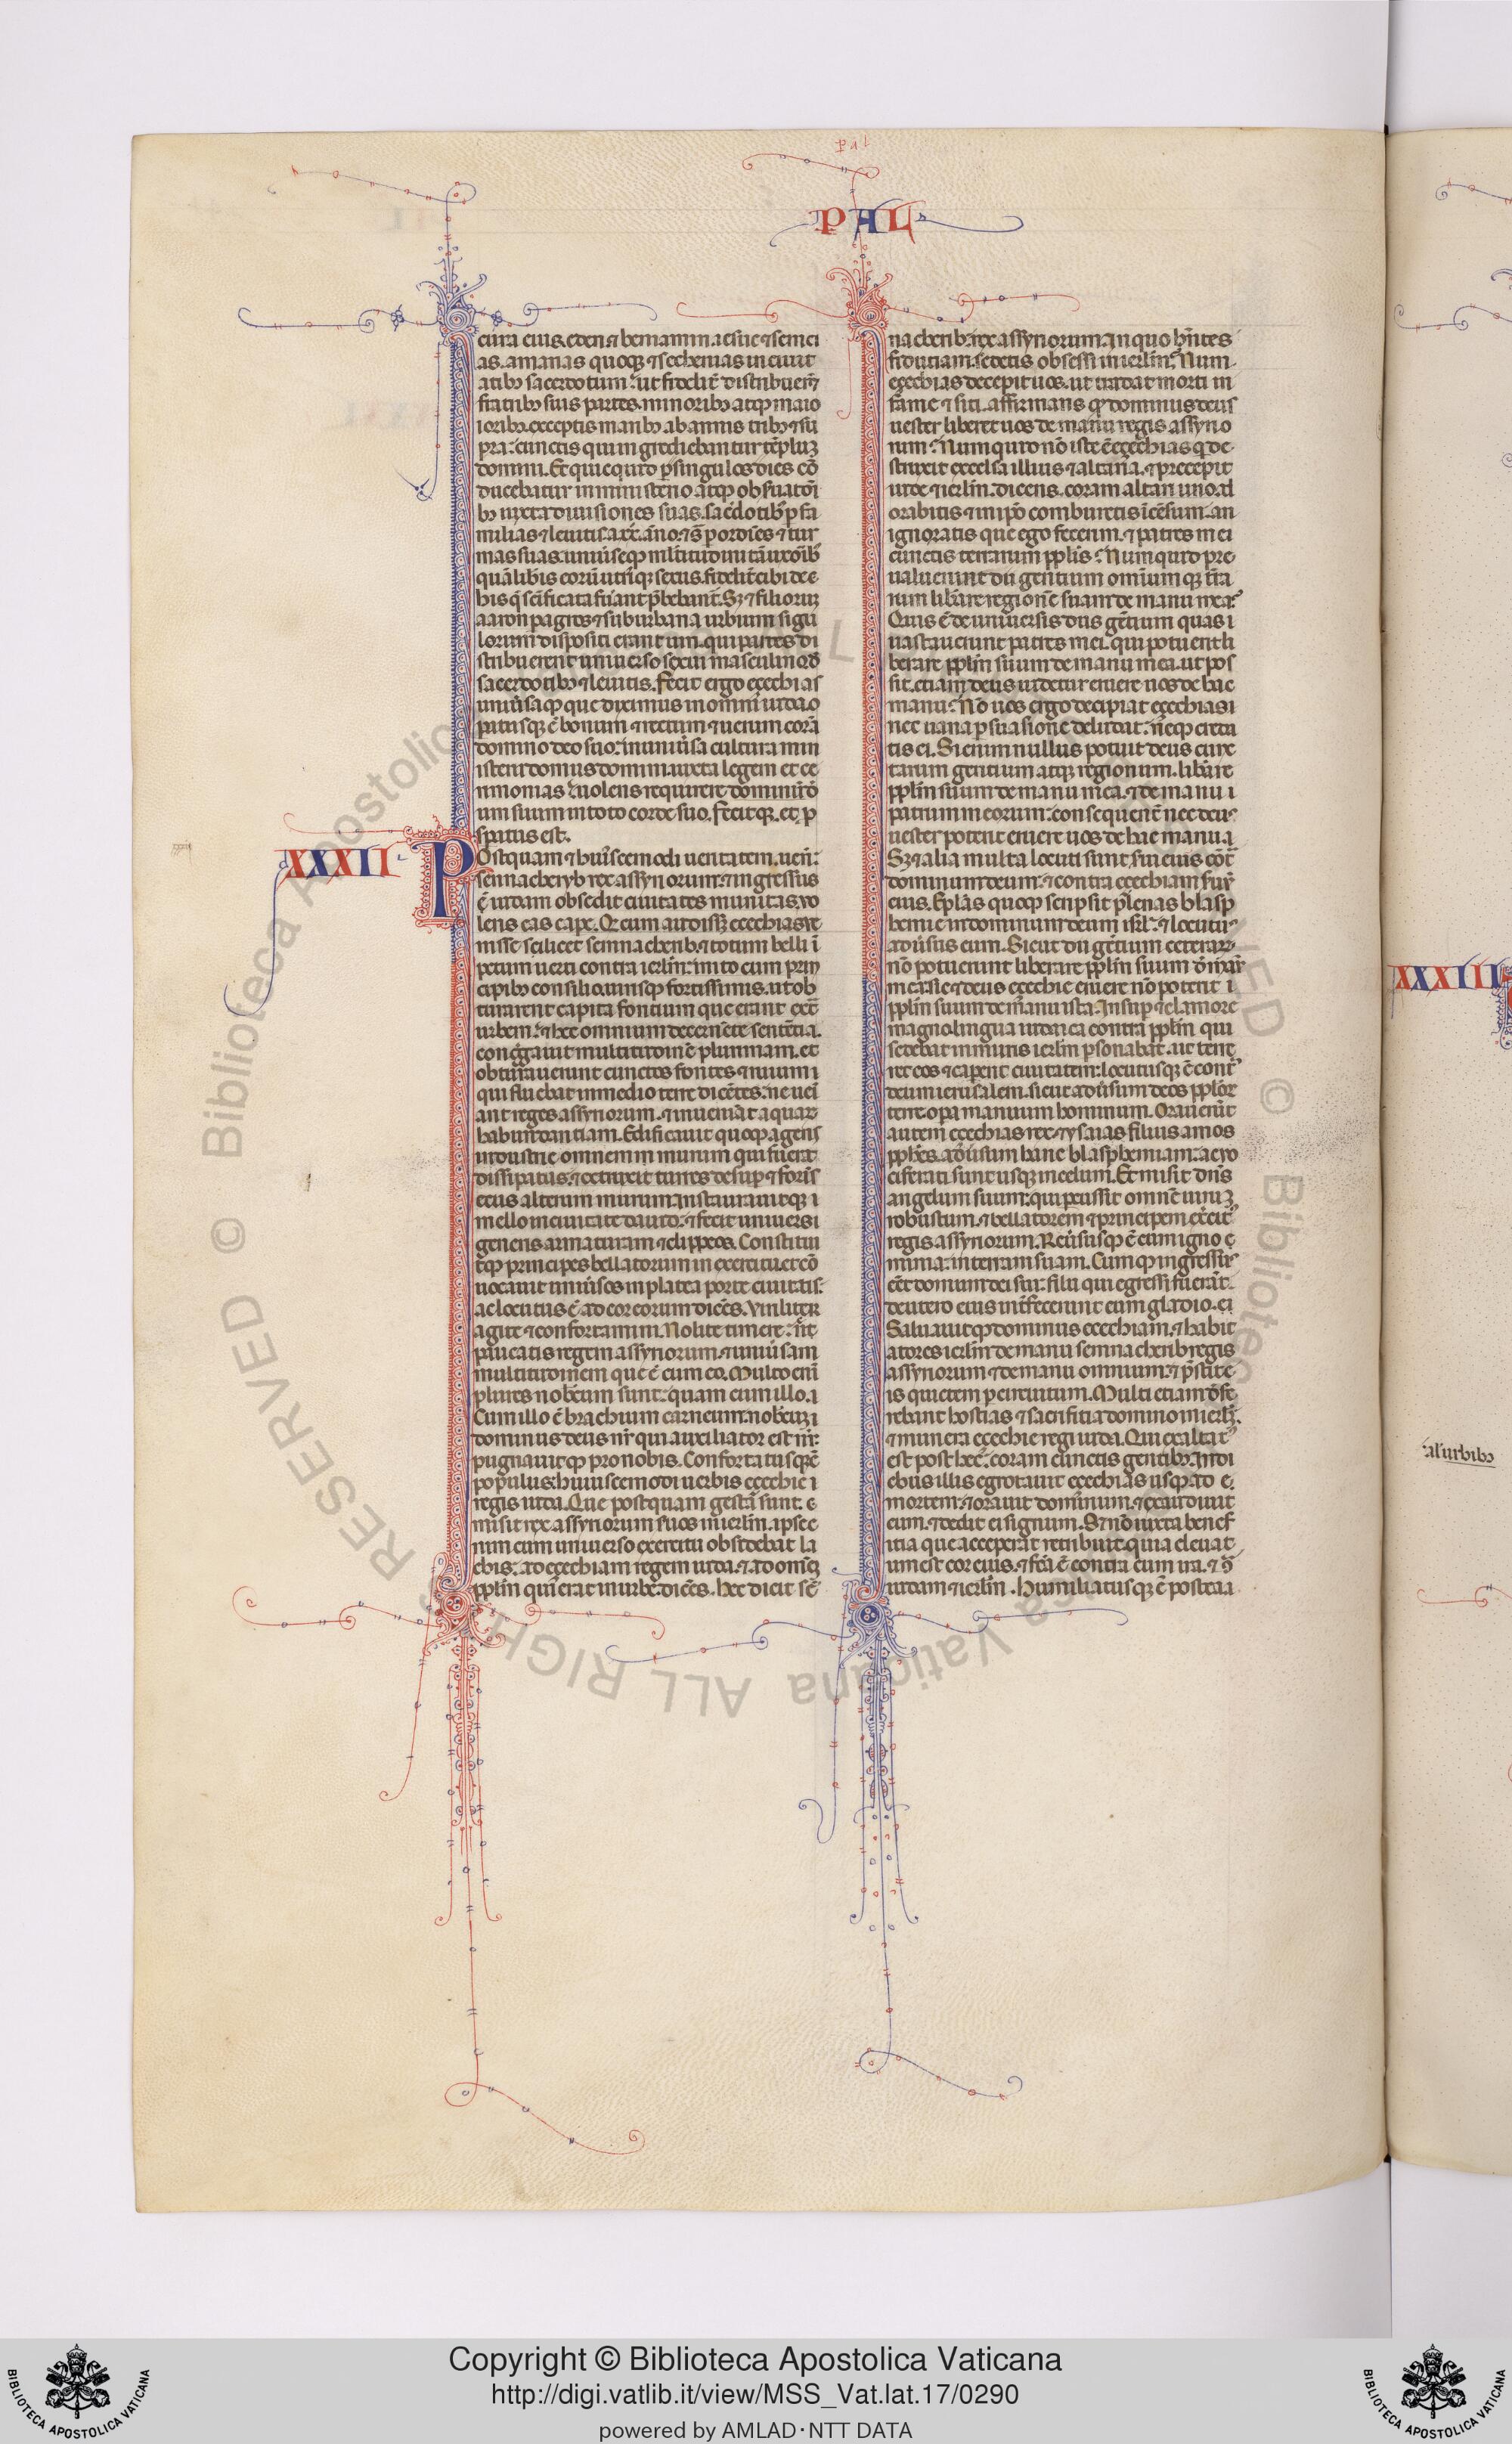 pal
PAL
cura eius. eden ⁊ beniamin. iesue ⁊ semei
as. amarias quoqȝ ⁊ sechenias in ciuit
atibȝ sacerdotum. ut fidelit̃ distribuer̃t
fratribȝ suis partes. minoribȝ atqȝ maio
ioribȝ. exceptis maribȝ ab annis tribȝ ⁊ su
pra: cunctis qui ingrediebantur tẽpluȝ
domini. Et quicquid ꝑ singulos dies cõ
ducebatur in ministerio atqȝ obseruatõi
bȝ iuxta diuisiones suas. sac̃dotibȝ ꝑ fa
milias ⁊ leuitis a .xx. ãno. ⁊ s̃ ꝑ ordĩes ⁊ tur
mas suas. uniũseqȝ ml̃titudini tã uxorib̃
quã lib̃is eorũ utriusqȝ sexus. fidelit̃ cibi de e
his q̃ sc̃ificata fũant p̃bebant̃. Sȝ ⁊ filioruȝ
aaron ꝑ agros ⁊ suburbana urbium sigu
lorum dispositi erant uiri. qui partes di
stribuerent uniuerso sexui masculino d̃
sacerdotibȝ ⁊ leuitis. Fecit ergo ezechias
uniũsa qȝ que diximus in omni iuda. o
patusqȝ ẽ bonum ⁊ rectum ⁊ uerum corã
domino deo suo: in uniũsa cultura min
isterii domus domini. iuxta legem et ce
rimonias uolens requirere dominũ dõ
um suum in toto corde suo. fecitqȝ. et ꝓ
speratus est.
XXXII
Postquam ⁊ huiuscemodi ueritatem. uen̄:
sennacheryb rex assyriorum. ⁊ ingressus
ẽ iudam obsedit ciuitates munitas. uo
lens eas cape. Q̃ cum audissȝ ezechias ue
nisse scilicet sennacherib. ⁊ totum belli ĩ
petum uerti contra ierl̃m: inito cum prin
cipibȝ consilio. uirisqȝ fortissimis. ut ob
turarent capita fontium que erant ext̃
urbem. ⁊ hoc omnium decernẽte sentẽtia.
congregauit multitudinẽ plurimam. et
obturauerunt cunctos fontes ⁊ riuum i
qui fluebat in medio terre dicẽtes. ne uẽi
ant reges assyriorum. ⁊ inueniãt aquaȝ
habundantiam. Edificauit quoqȝ agens
industrie omnem murum qui fuerat
dissipatus. ⁊ extruxit turres desuꝑ. ⁊ forĩs
ecus alterum murum. instaurauitqȝ i
mello in ciuitate dauid. ⁊ fecit uniuersi
generis armaturam ⁊ clippeos. Constitui
tqȝ principes bellatorum in exercitu. et cõ
uocauit uniũsos in platea porte ciuitatis.
ac locutus ẽ ad cor eorum dicẽs. Uiriliter
agite ⁊ confortamini. Nolite timere: nec
paueatis regem assyriorum. ⁊ uniũsam
multitudinem que ẽ cum eo. Multo eni
plures nobĩcum sunt: quam cum illo. i
Cum illo ẽ brachium carneum. nobĩcuȝ i
dominus deus nr̃ qui auxiliator est nr̃:
pugnauitqȝ pro nobis. Confortatusqȝ ẽ
populus huiuscemodi uerbis ezechie i
regis iuda. Que postquam gesta sunt. e
misit rex assyriorum suos in ierl̃m. ipse e
nim cum uniuerso exercitu obsidebat la
chis. ad ezechiam regem iuda. ⁊ ad omẽȝ
ppl̃m qui erat in urbe. dicẽs. Hec dicit sẽ
nacherib rex assyriorum. In quo hñtes
fiduciam. sedetis obsessi in ierl̃m? Num
ezechias decepit uos. ut tradat morti in
fame ⁊ siti. affirmans qȝ dominus deus
uester liberet uos de manu regis assyrio
rum? Numquid nõ iste ẽ ezechias q de
struxit excelsa illius ⁊ altaria. ⁊ precepit
iude ⁊ ierl̃m. dicens. coram altari uno ad
orabitis ⁊ in ip̃o comburetis ĩcẽsum. an
ignoratis que ego fecerim. ⁊ patres mei
cunctis terrarum ppl̃is? Numquid pre
ualuerunt dii gentium omnium qȝ t̃ra
rum lib̃are regionẽ suam de manu mea?
Quis ẽ de uniuersis diis gẽtium quas i
uastauerunt patres mei. qui potuerit li
berare ppl̃m suum de manu mea. ut pos
sit. etiam deus uester eruere uos de hac
manu? Nõ uos ergo decipiat ezechias i
nec uana ꝑsuasione deludat: neqȝ creda
tis ei. Si enim nullus potuit deus cunc
tarum gentium atqȝ regionum. lib̃are
ppl̃m suum de manu mea. ⁊ de manu i
patrum meorum: consequent̃ nec deus
uester poterit eruere uos de hac manu. a
Sȝ ⁊ alia multa locuti sunt. sui eius cõt̃
dominum deum. ⁊ contra ezechiam suũ
eius. Epl̃as quoqȝ scripsit plenas blasp
hemie in dominum deum isrl̃. ⁊ locutus
aduersus eum. Sicut dii gẽtium ceterarum
nõ potuerunt liberare ppl̃m suum d̃ mãu
mea: sic ⁊ deus ezechie eruere nõ poterit i
ppl̃m suum de manu ista. Insuꝑ ⁊ clamore
magno. lingua iudaica contra ppl̃m qui
sedebat in muris ierl̃m ꝑsonabat. ut terre
ret eos ⁊ caperet ciuitatem: locutusqȝ ẽ cont̃
deum ierusalem. sicut aduersum deos ppl̃or
terre. oꝑa manuum hominum. Orauerũt
autem ezechias rex. ⁊ ysaias filius amos
pphẽs. adũsum hanc blasphemiam: ac uo
ciferati sunt usqȝ in celum. Et misit dñs
angelum suum: qui percussit omnẽ uiruȝ
robustum. ⁊ bellatorem ⁊ principem exercit̃
regis assyriorum. Reuersusqȝ ẽ cum igno e
minia in terram suam. Cumqȝ ingressus
eẽt domum dei sui: filii qui egressi fuerãt
de utero eius int̃fecerunt eum gladio. ei
Saluauitqȝ dominus ezechiam. ⁊ habit
atores ierl̃m de manu sennacherib regis
assyriorum ⁊ de manu omnium. ⁊ p̃stitit e
is quietem ꝑ circuitum. Multi etiam d̃fe
rebant hostias ⁊ sacrifitia domino in ierl̃m.
⁊ munera ezechie regi iuda. Qui exaltat̃
est post hec. coram cunctis gentibȝ. In di
ebus illis egrotauit ezechias usqȝ ad e
mortem. ⁊ orauit dominum. ⁊ exaudiuit
eum. ⁊ dedit ei signum. S̃ nõ iuxta benef
itia que acceperat retribuit. quia eleuat
um est cor eius. ⁊ fc̃a ẽ contra eum ira. ⁊ 9̃
iudam ⁊ ierl̃m. Humiliatusqȝ ẽ postea a
XXXIII
al' urbibȝ
© Biblioteca Apostolica Vaticana ALL RIGHTS RESERVED
Copyright © Biblioteca Apostolica Vaticana
http://digi.vatlib.it/view/MSS_Vat.lat.17/0290
powered by AMLAD·NTT DATA
BIBLIOTECA APOSTOLICA VATICANA
BIBLIOTECA APOSTOLICA VATICANA